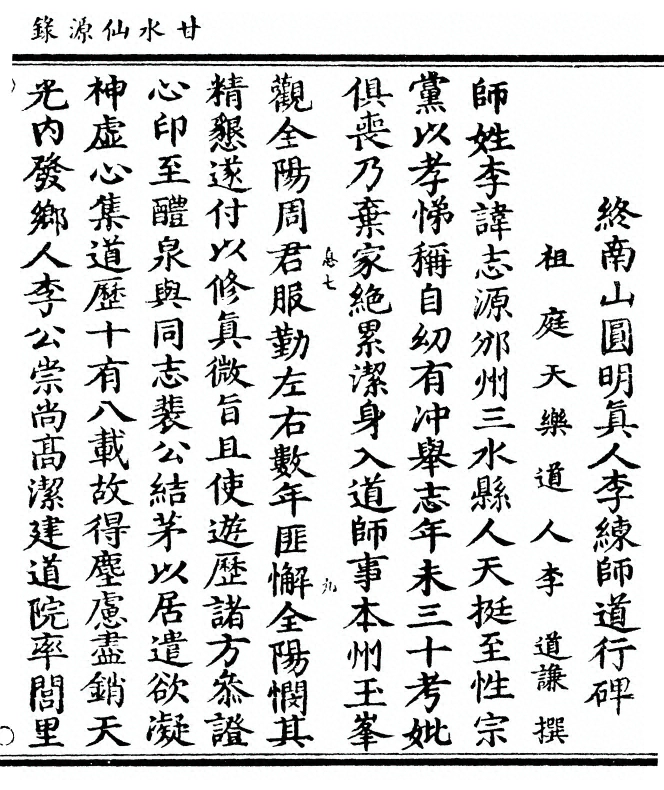 甘水仙源錄
終南山圓明眞人李練師道行碑
祖庭天樂道人李道謙撰
師姓李諱志源邠州三水縣人天挺至性宗
黨以孝悌稱自幼有冲舉志年未三十考妣
俱喪乃棄家絶累潔身入道師事本州玉峯
息七
九
觀全陽周君服勤左右數年匪懈全陽憫其
精懇遂付以修眞微旨且使遊歷諸方叅證
心印至醴泉與同志裴公結茅以居遣欲凝
神虛心集道歷十有八載故得塵慮盡銷天
光内發鄉人李公崇尚高潔建道院率閭里